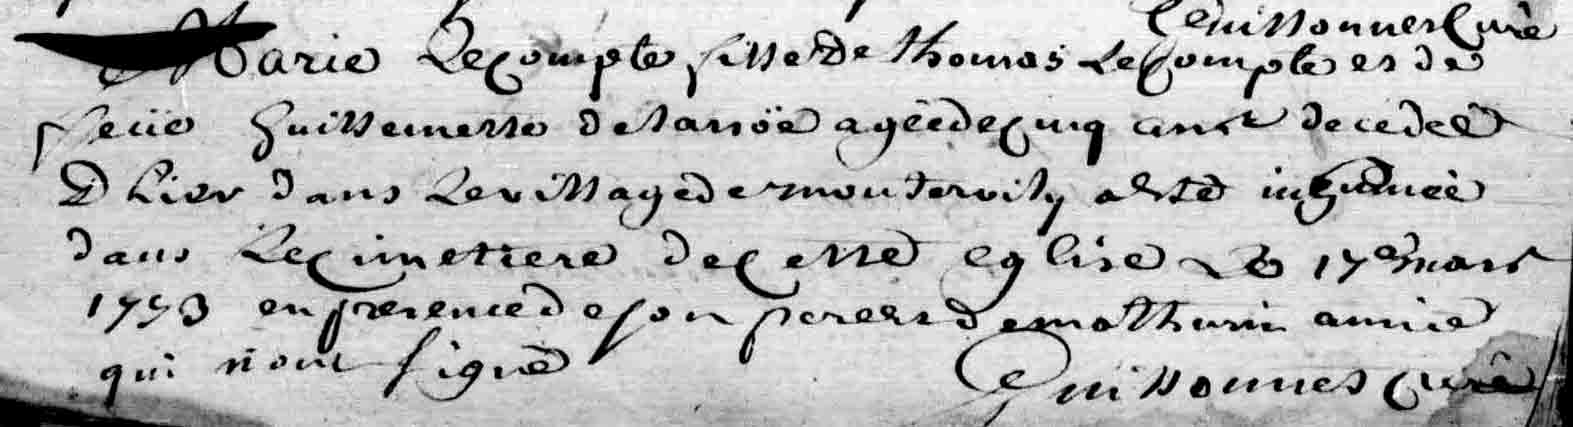 Guissonnes Curé
Marie Lecompte fille de thomas Lecompte et de
feüe Guillemette delanoë agéé de cinq ans decedeé
D hier dans Le village de montervily a esté inhumeé
dans Le cimetiere de cette eglise Le 17e mars
1773 en presence de son pere et de mathurin annié
qui n'ont signé
Guissonnes curé